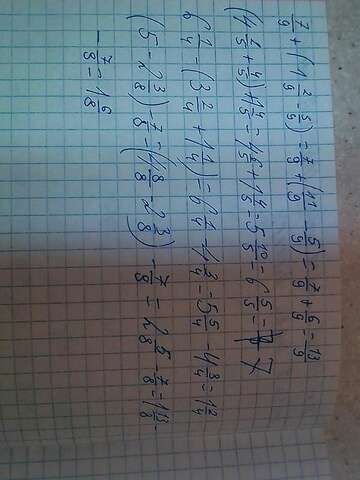 7/9 + (1 2/9 - 5/9) = 7/9 + (11/9 - 5/9) = 7/9 + 6/9 = 13/9
(4 1/5 + 4/5) + 1 4/5 = 4 6/5 + 1 4/5 = 5 10/5 = 6 5/5 = 7
6 1/4 - (3 2/4 + 1 1/4) = 6 1/4 - 4 3/4 = 5 5/4 - 4 3/4 = 1 2/4
(5 - 2 3/8) - 7/8 = (4 8/8 - 2 3/8) - 7/8 = 2 5/8 - 7/8 = 1 13/8 -
- 7/8 = 1 6/8